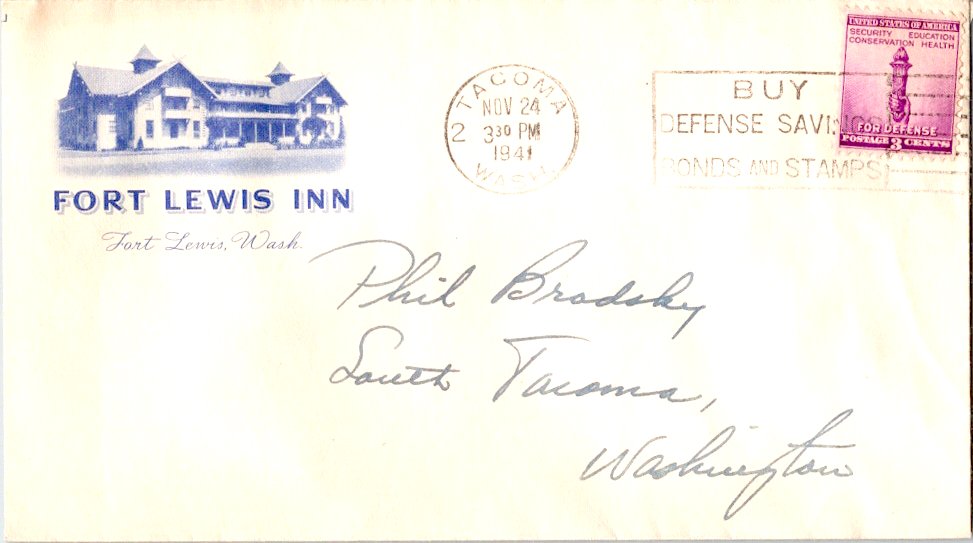 FORT LEWIS INN
Fort Lewis, Wash.
TACOMA
NOV 24
3 30 PM
1941
WASH.
2
BUY
DEFENSE SAVINGS
BONDS AND STAMPS
UNITED STATES OF AMERICA
SECURITY EDUCATION
CONSERVATION HEALTH
FOR DEFENSE
POSTAGE 3 CENTS
Phil Bradsky
South Tacoma,
Washington